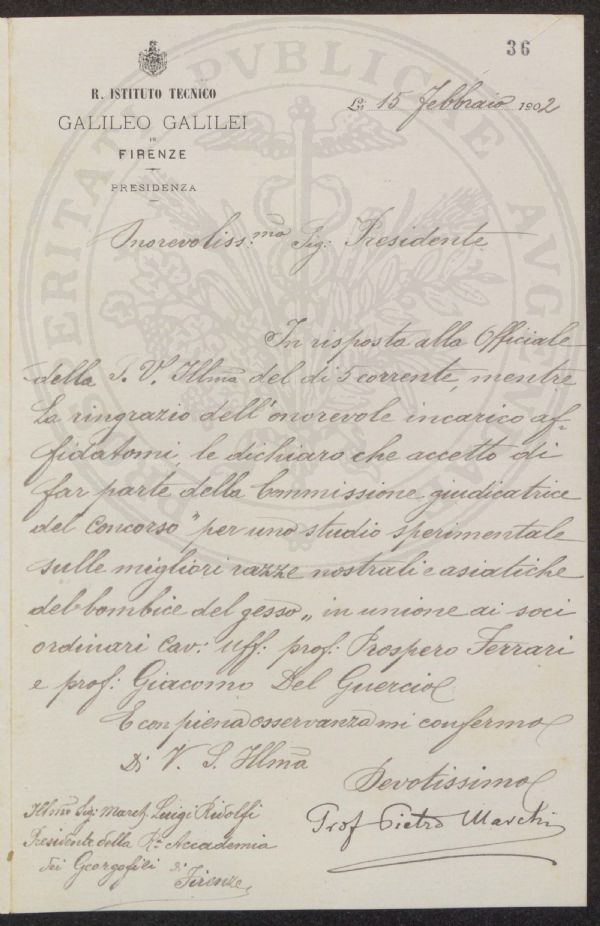 36
R. ISTITUTO TECNICO
GALILEO GALILEI
IN
FIRENZE
PRESIDENZA
Lì 15 Febbraio 1902
Onorevoliss:mo Sig: Presidente
In risposta alla Officiale
della S. V. Illma del di 5 corrente, mentre
La ringrazio dell'onorevole incarico af-
fidatomi, le dichiaro che accetto di
far parte della Commissione giudicatrice
del Concorso "per uno studio sperimentale
sulle migliori razze nostrali e asiatiche
del bombice del gesso„ in unione ai soci
ordinari Cav: Uff: prof: Prospero Ferrari
e prof: Giacomo Del Guercio
E con piena osservanza mi confermo
Di V. S. Illma
Devotissimo
Prof Pietro Marchi
Illmo Sig: March. Luigi Ridolfi
Presidente della Ra Accademia
dei Georgofili di
Firenze